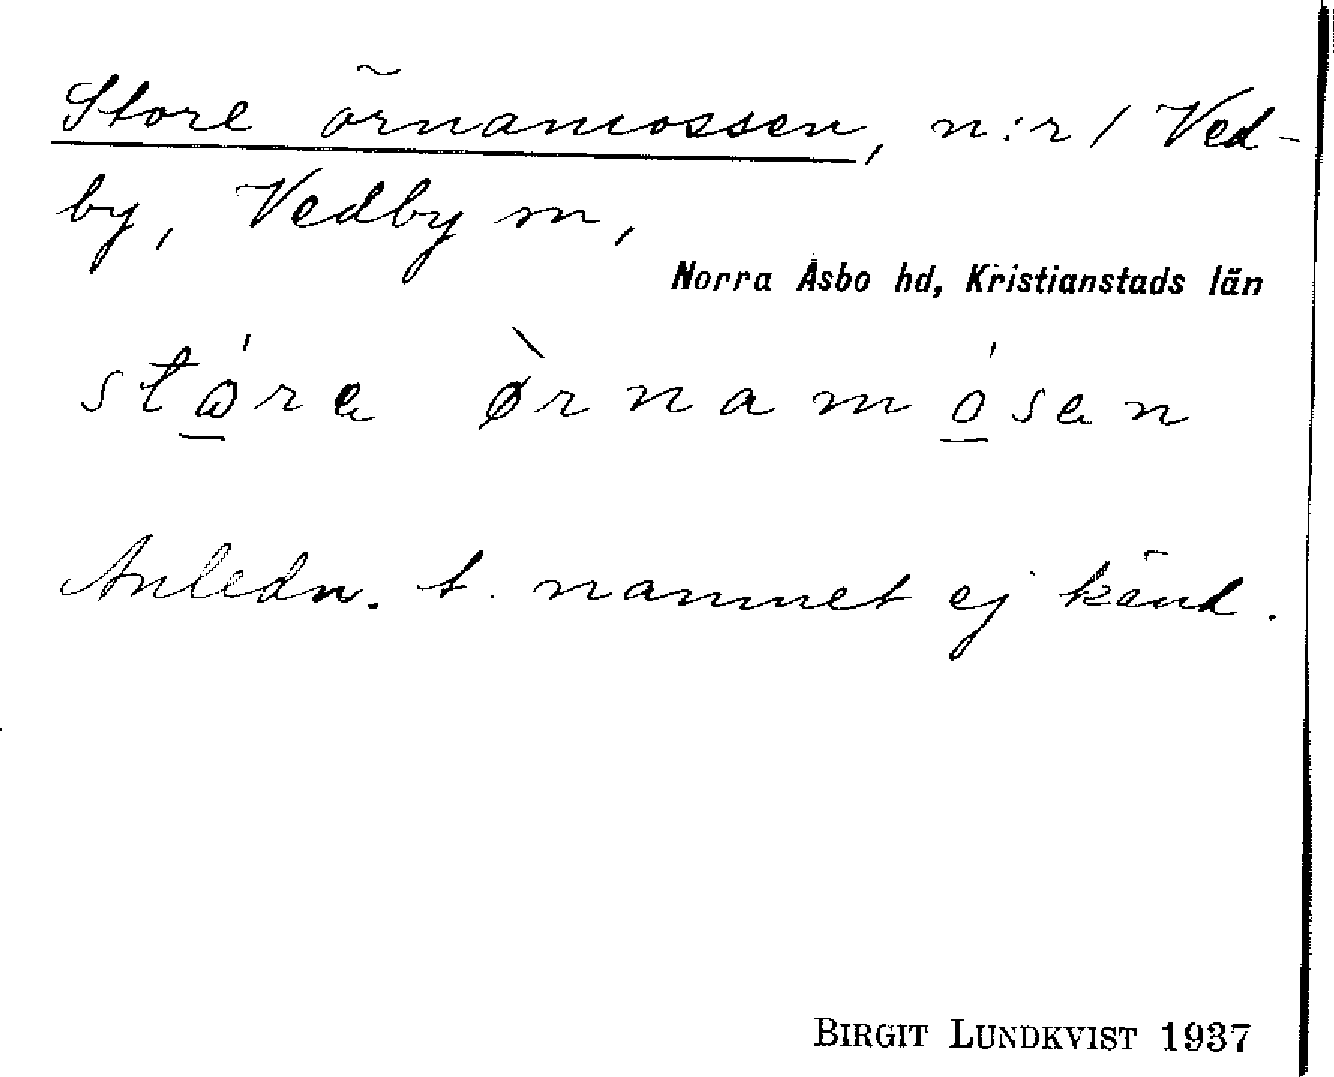 Store örnamossen, n:r 1 Ved-
by, Vedby sn,
Norra Åsbo hd, Kristianstads län
Anledn. t. namnet ej känd.
BIRGIT LUNDKVIST 1937